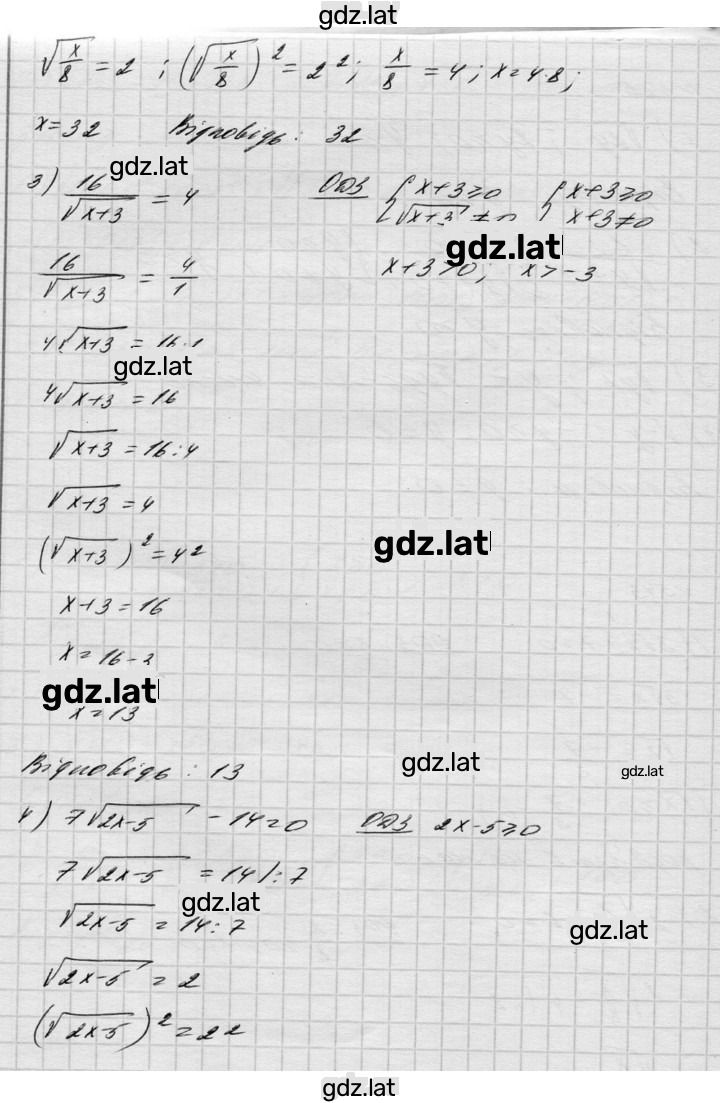 gdz.lat
√(x/8) = 2 ; (√(x/8))² = 2²; x/8 = 4; x = 4·8;
x = 32 Відповідь: 32
gdz.lat
3) 16/√(x+3) = 4 ОДЗ { x+3≥0 { x+3≥0
√(x+3) ≠ x+3≠0
gdz.lat
16/√(x+3) = 4/1 x+3>0; x>-3
4√(x+3) = 16·1
gdz.lat
4√(x+3) = 16
√(x+3) = 16:4
√(x+3) = 4
gdz.lat
(√(x+3))² = 4²
x+3 = 16
x = 16-3
gdz.lat
x = 13
Відповідь: 13
gdz.lat gdz.lat
4) 7√(2x-5) - 14 = 0 ОДЗ 2x-5≥0
7√(2x-5) = 14 /:7
gdz.lat
√(2x-5) = 14:7
gdz.lat
√(2x-5) = 2
(√(2x-5))² = 2²
gdz.lat